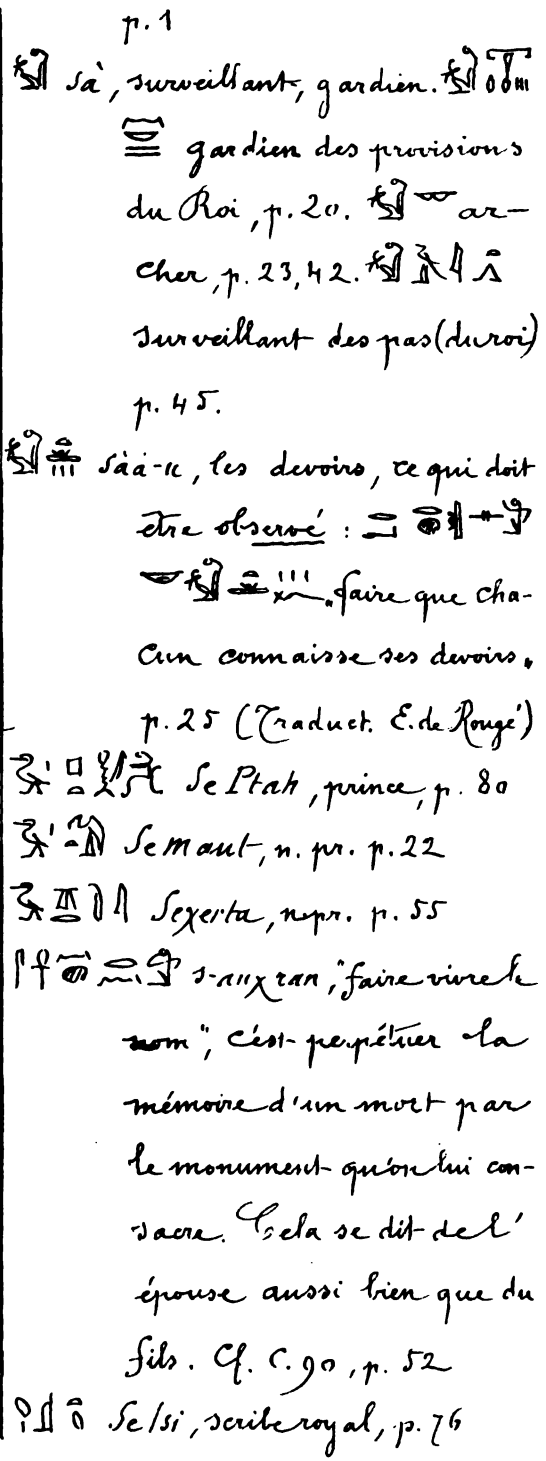 p. 1
sà, surveillant, gardien.
gardien des provisions
du Roi, p. 20. ar-
cher, p. 23, 42.
surveillant des pas (du roi)
p. 45.
sàà-u, les devoirs, ce qui doit
être observé :
"faire que cha-
cun connaisse ses devoirs"
p. 25 (Traduct. E. de Rougé)
Se Ptah, prince, p. 80
Se maut, n. pr. p. 22
Seχerta, n. pr. p. 55
s-anχ ran, "faire vivre le
nom", c'est perpétuer la
mémoire d'un mort par
le monument qu'on lui con-
sacre. Cela se dit de l'
épouse aussi bien que du
fils. Cf. C. 90, p. 52
scribe royal, p. 76